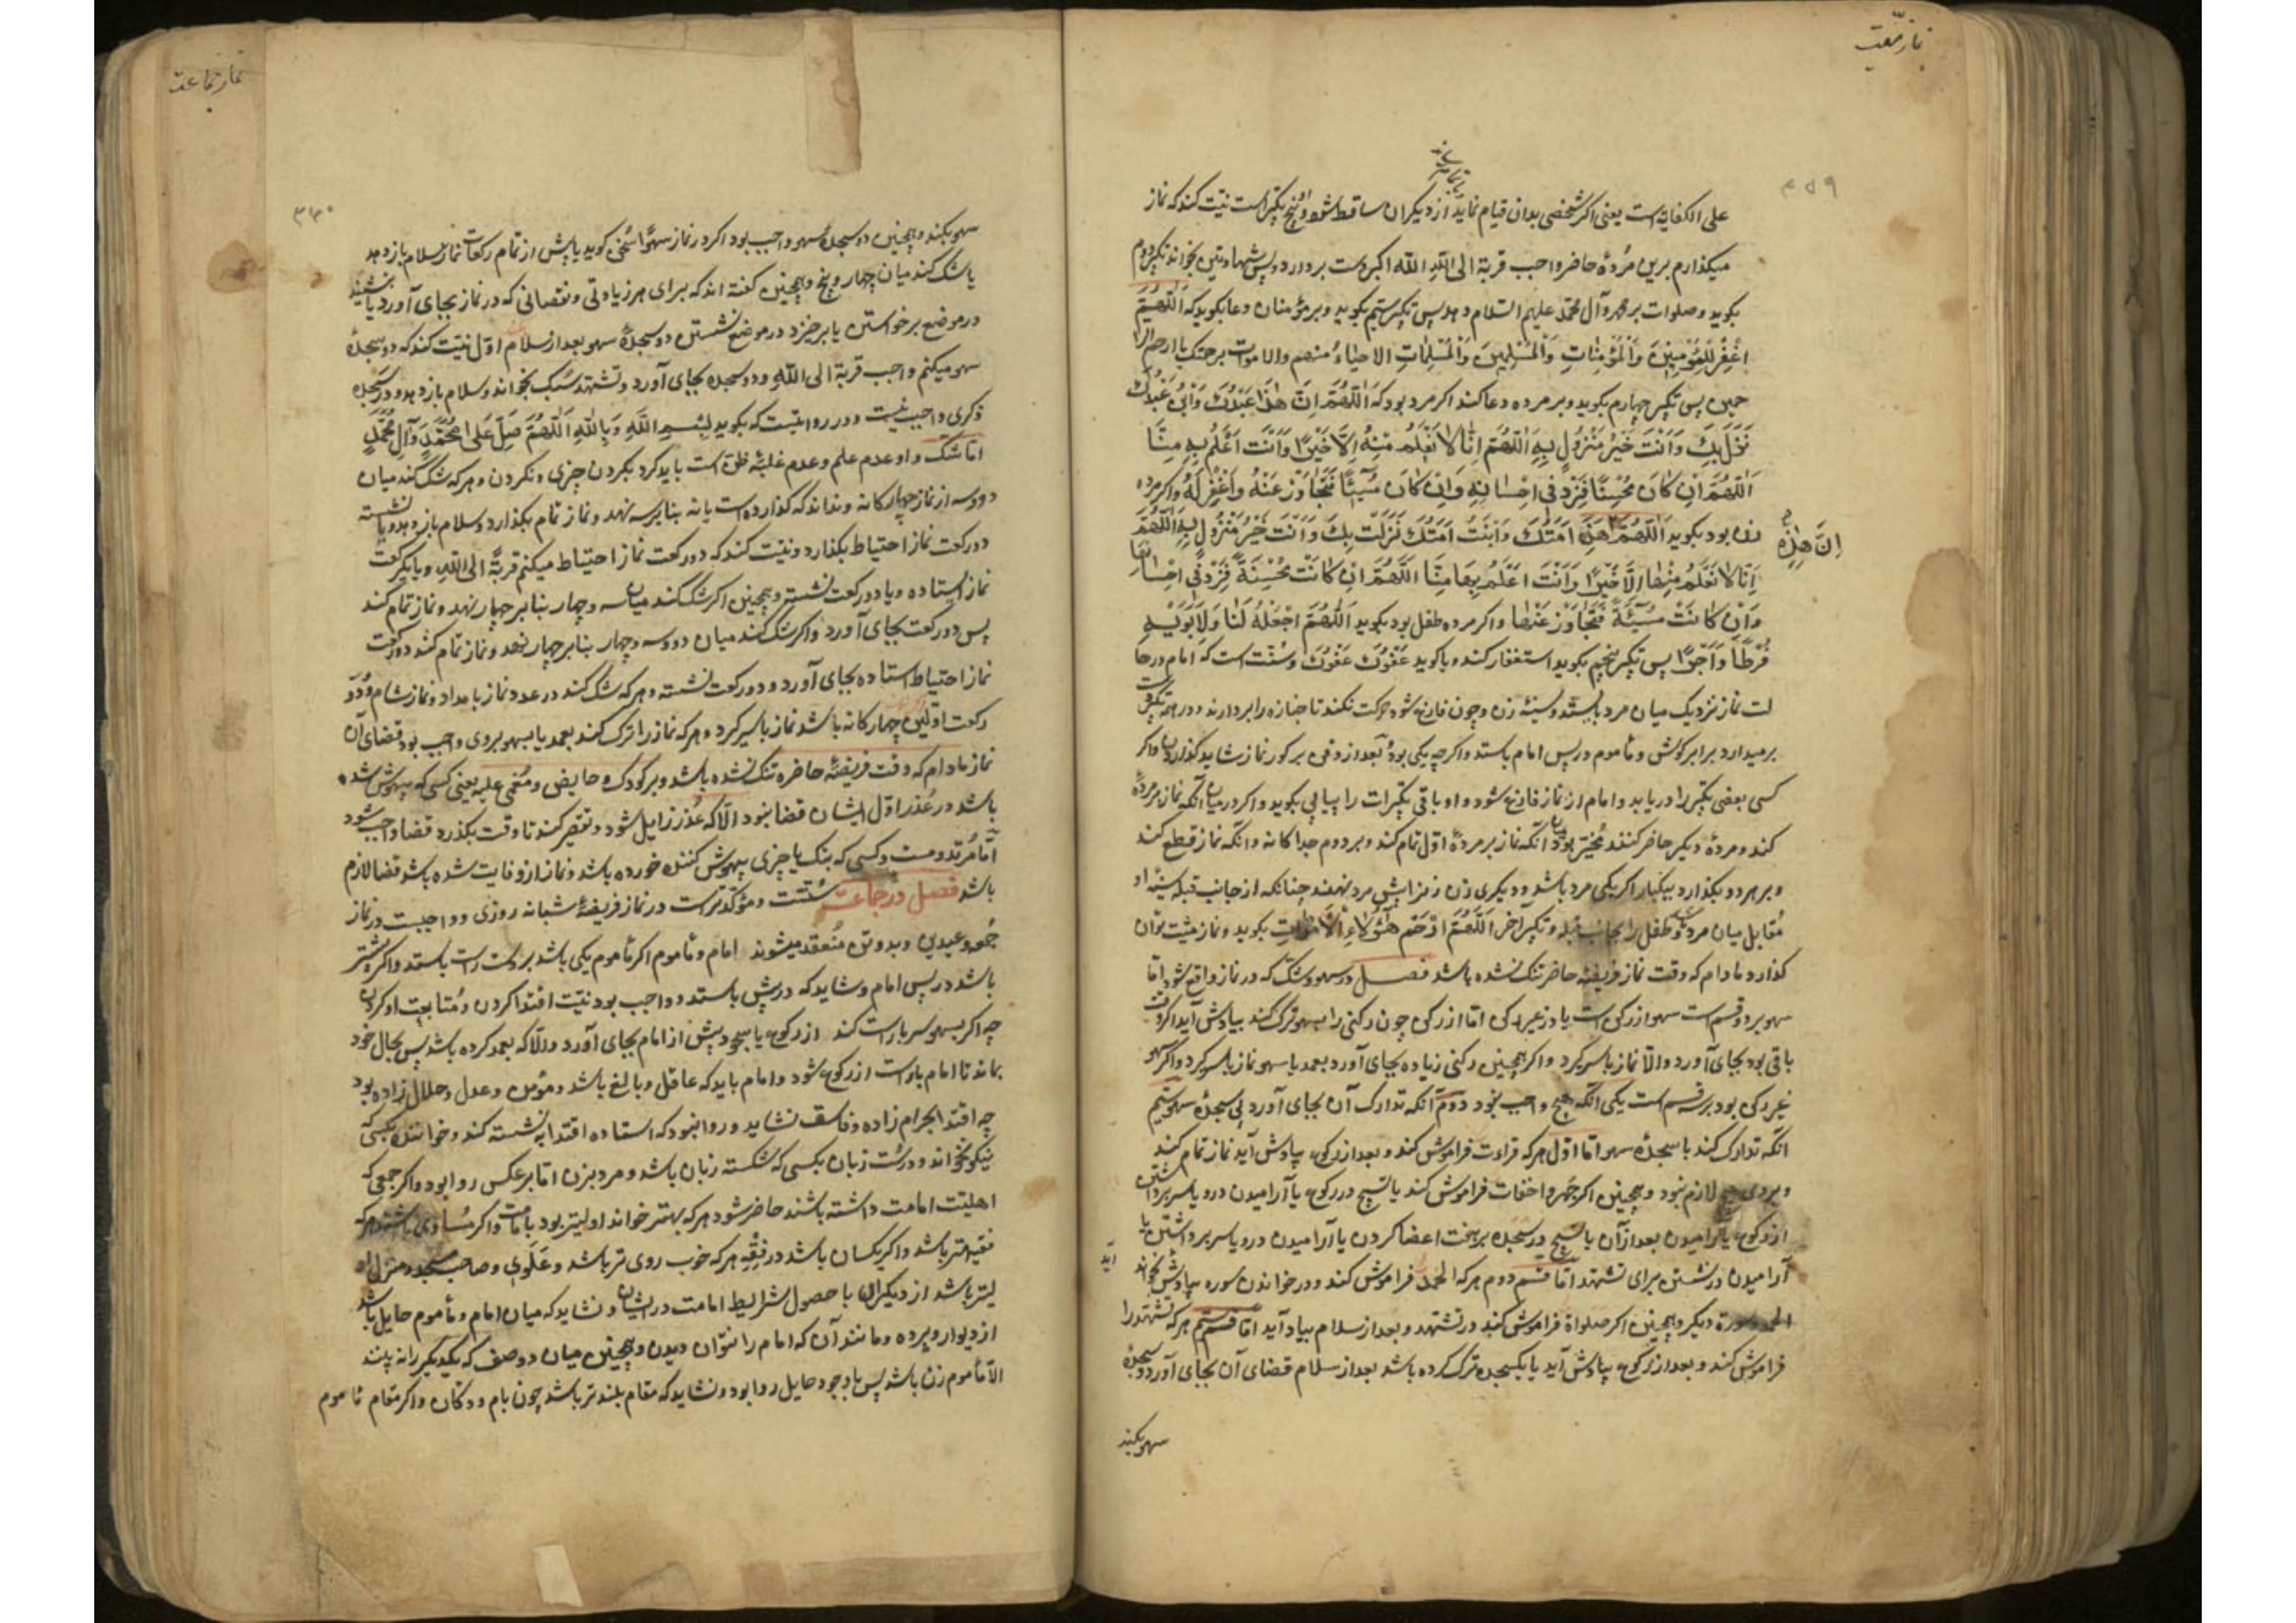 نماز میّت
۳۵۹
علی الکفایه است یعنی اگر شخصی بدان قیام نماید از دیگران ساقط شود و پنج تکبیر است نیت کند که نماز
میکذارم برین مُردهٔ حاضر واجب قربة الی الله الله اکبر و دست بردارد و پس شهادتین بخواند تکبیر دوم
بکوید و صلوات بر محمد و آل محمد علیهم السلام دهد پس تکبیر سیّم بکوید و بر مؤمنان دعا بکوید که اَللّٰهُمَّ
اغْفِرْ لِلْمُؤْمِنِینَ وَالْمُؤْمِنَاتِ وَالْمُسْلِمِینَ وَالْمُسْلِمَاتِ الاحیاءِ منهم والاموات برحمتک یا ارحم الرا
حمین پس تکبیر چهارم بکوید و بر مرده دعا کند اکر مرد بود که اَللّٰهُمَّ اِنَّ هٰذَا عَبْدُكَ وَابْنُ عَبْدِكَ
نَزَلَ بِكَ وَاَنْتَ خَیْرُ مَنْزُولٍ بِهِ اَللّٰهُمَّ اِنَّا لَا نَعْلَمُ مِنْهُ اِلَّا خَیْرًا وَاَنْتَ اَعْلَمُ بِهِ مِنَّا
اَللّٰهُمَّ اِنْ كَانَ مُحْسِنًا فَزِدْ فی اِحْسَانِهِ وَاِنْ كَانَ مُسِیئًا فَتَجَاوَزْ عَنْهُ وَاغْفِرْ لَهُ واکر مرده
زن بود بکوید اَللّٰهُمَّ هٰذِهِ اَمَتُكَ وَابْنَتُ اَمَتِكَ نَزَلَتْ بِكَ وَاَنْتَ خَیْرُ مَنْزُولٍ بِهِ اَللّٰهُمَّ
اِنَّ هٰذِهِ
اِنَّا لَا نَعْلَمُ مِنْهَا اِلَّا خَیْرًا وَاَنْتَ اَعْلَمُ بِهَا مِنَّا اَللّٰهُمَّ اِنْ كَانَتْ مُحْسِنَةً فَزِدْ فی اِحْسَانِهَا
وَاِنْ كَانَتْ مُسِیئَةً فَتَجَاوَزْ عَنْهَا واکر مرده طفل بود بکوید اَللّٰهُمَّ اجْعَلْهُ لَنَا وَلِاَبَوَیْهِ
فُرْطًا وَاَجْرًا پس تکبیر پنجم بکوید استغفار کند و یا کوید عَفْوَكَ عَفْوَكَ و سُنّت است که امام در حا
لت نماز نزدیک میان مرد بایستد و سینهٔ زن و چون فارغ شود حرکت نکند تا جنازه را بردارند و در همه تکبیر دست
برمیدارد برابر کوش و مأموم در پس امام بایستد و اکرچه یکی بود و بعد از دفن بر کور نماز شاید کذاردن و اکر
کسی بعضی تکبیر را دریابد و امام از نماز فارغ شود او باقی تکبیرات را پیاپی بکوید و اکر در میان آنکه نماز بر مردهٔ
کند و مردهٔ دیکر حاضر کنند مُخَیّر بود میان آنکه نماز بر مردهٔ اوّل تمام کند و بر دوم جداکانه و آنکه نماز قطع کند
و بر هر دو بکذارد بیکبار اکر یکی مرد باشد و دیکری زن زن را پیش مرد نهند چنانکه از جانب قبله سینهٔ او
مُقابل میان مرد شود و طفل را بجانب قبله و تکبیر آخر اَللّٰهُمَّ ارْحَمْ هٰؤُلَاءِ الْاَمْوَاتِ بکوید و نماز میّت توان
کذارد مادام که وقت نماز فریضه حاضر تنک نشده باشد فصل در سهو و شک که در نماز واقع شود امّا
سهو بر دو قسم است سهو از رکن است یا از غیر رکن امّا از رکن چون رکنی را بسهو ترک کند بیادش آید اکر وقت
باقی بود بجای آورد والّا نماز باسر کیرد و اکر همچنین رکنی زیاده بجای آورد بعمد یا سهو نماز باسر کیرد و اکر سهو
غیر رکن بود بر سه قسم است یکی آنکه هیچ واجب نبود دوّم آنکه تدارک آن بجای آورد بی سجدهٔ سهو سیّم
آنکه تدارک کند با سجدهٔ سهو امّا اوّل هرکه قراءت فراموش کند و بعد از رکوع بیادش آید نماز تمام کند
و بر وی هیچ لازم نبود و همچنین اکر جهر و اخفات فراموش کند یا تسبیح در رکوع یا آرامیدن در و یا سر برداشتن
از رکوع یا آرامیدن بعد از آن یا تسبیح در سجده بر هفت اعضا کردن یا آرامیدن در و یا سر برداشتن یا
آرامیدن در نشستن برای تشهد امّا قسم دوم هرکه الحمد فراموش کند و در خواندن سوره بیادش آید بخواند
الحمد و سورة دیکر و همچنین اکر صلواة فراموش کند در تشهّد و بعد از سلام بیاد آید امّا قسم سیّم هرکه تشهّد را
فراموش کند و بعد از رکوع بیادش آید یا یکسجده ترک کرده باشد بعد از سلام قضای آن بجای آورد و دو سجدهٔ
سهو بکند
نماز جماعت
۳۶۰
سهو بکند و همچنین دو سجدهٔ سهو واجب بود اکر در نماز سهوًا سُخن کوید یا پیش از تمام رکعات نماز سلام باز دهد
یا شک کند میان چهار و پنج و همچنین کفته اند که برای هر زیادتی و نقصانی که در نماز بجای آورد یا بنشیند
در موضع برخواستن یا برخیزد در موضع نشستن دو سجدهٔ سهو بعد از سلام اوّل نیّت کند که دو سجدهٔ
سهو میکنم واجب قربة الی الله و دو سجده بجای آورد و تشهّد سُبک بخواند و سلام باز دهد و در سجده
ذکری واجب نیست و در روایتست که بکوید بِسْمِ اللّٰهِ وَبِاللّٰهِ اَللّٰهُمَّ صَلِّ عَلٰی مُحَمَّدٍ وَآلِ مُحَمَّدٍ
امّا شک و او عدم علم و عدم غلبهٔ ظنّ است باید کرد بکردن چیزی و نکردن و هرکه شک کند میان
دو و سه از نماز چهارکانه و نداند که کذارده است یا نه بنا بر سه نهد و نماز تمام بکذارد و سلام باز دهد و یا نشسته
دو رکعت نماز احتیاط بکذارد و نیّت کند که دو رکعت نماز احتیاط میکنم قربةً الی الله و یا یکرکعت
نماز ایستاده و یا دو رکعت نشسته و همچنین اکر شک کند میان سه و چهار بنا بر چهار نهد و نماز تمام کند
پس دو رکعت بجای آورد و اکر شک کند میان دو و سه و چهار بنا بر چهار نهد و نماز تمام کند دو رکعت
نماز احتیاط استاده بجای آورد و دو رکعت نشسته و هرکه شک کند در عدد نماز بامداد و نماز شام و دو
رکعت اوّلین چهارکانه باشد نماز باسر کیرد و هرکه نماز را ترک کند بعمد یا بسهو بر وی واجب بود قضای آن
نماز مادام که وقت فریضهٔ حاضره تنک نشده باشد و بر کودک و حایض و مُغمی علیه یعنی کسی که بیهوش شده
باشد در عُذر اوّل ایشان قضا نبود الّا که عُذر زایل شود و تقصیر کنند تا وقت بکذرد قضا واجب شود
امّا مُرتد و مست و کسی که بنک یا چیزی بیهوش کننده خورده باشد و نماز ازو فایت شده باشد قضا لازم
باشد فصل در جماعت سُنّتست و مؤکّدترست در نماز فریضهٔ شبانه روزی و واجبست در نماز
جُمعه و عیدین و بدو تن مُنعقد میشوند امام و مأموم اکر مأموم یکی باشد بر دست راست بایستد و اکر بیشتر
باشد در پس امام و شاید که در پیش بایستد و واجب بود نیّت اقتدا کردن و مُتابعت او کردن
چه اکر بسهو سر باراست کند از رکوع یا سجود پیش از امام بجای آورد والّا که بعمد کرده باشد پس بحال خود
بماند تا امام باو راست از رکوع شود و امام باید که عاقل و بالغ باشد و مؤمن و عدل و حلال زاده بود
چه اقتدا بحرام زاده و فاسق نشاید و روا نبود که استاده اقتدا بنشسته کند و خواننده بکسی که
نیکو نخواند و درست زبان بکسی که شکسته زبان باشد و مرد بزن امّا بر عکس روا بود و اکر جمعی که
اهلیّت امامت داشته باشند حاضر شود هرکه بهتر خواند اولیتر بود بامامت و اکر مُساوی باشند هرکه
فقیه تر باشد و اکر یکسان باشد در فقه هرکه خوب روی تر باشد و عَلَوی و صاحب مسجد و منزل او
لیتر باشد از دیکران با حصول شرایط امامت در ایشان و نشاید که میان امام و مأموم حایل باشد
از دیوار و پرده و مانند آن که امام را نتوان دیدن و همچنین میان دو صف که یکدیکر را نه بینند
الّا مأموم زن باشد پس با وجود حایل روا بود و نشاید که مقام بلند تر باشد چون بام و دکان و اکر مقام مأموم